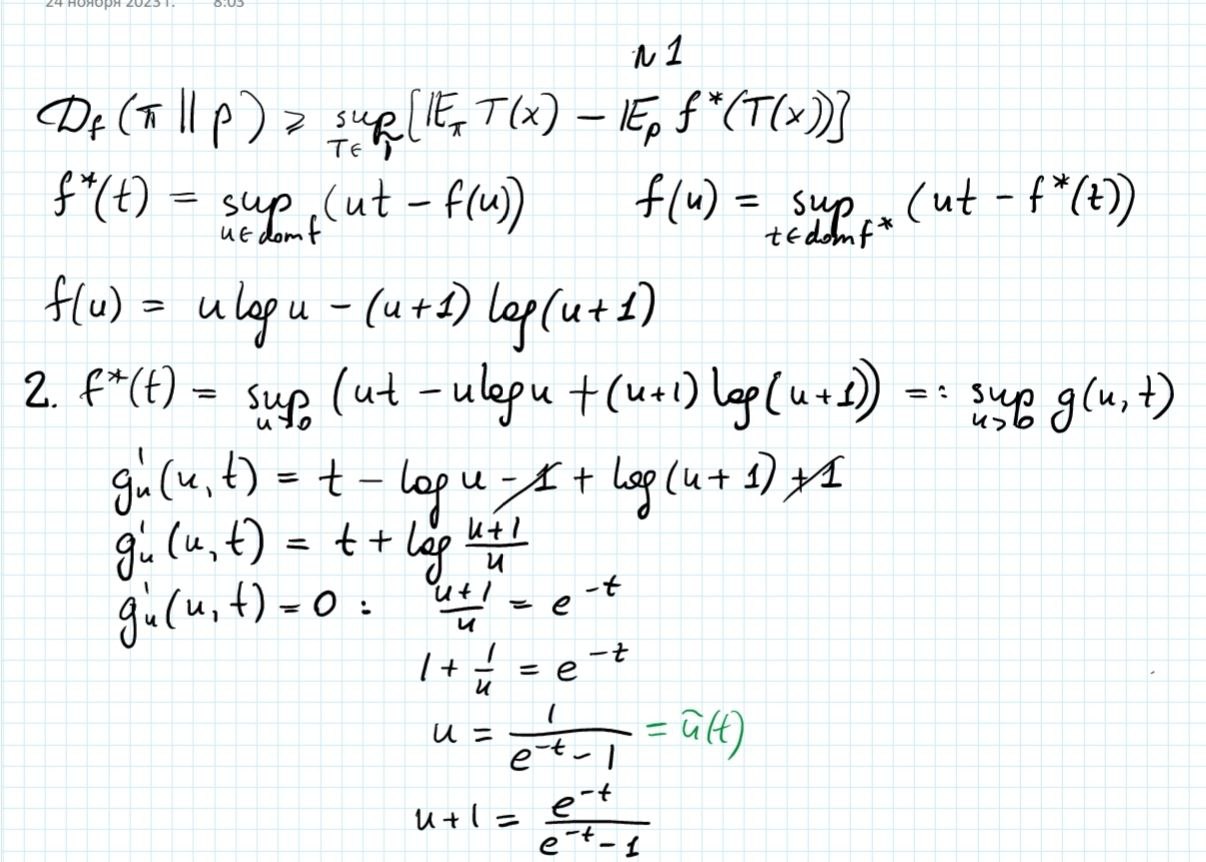 24 ноября 2023 г. 8:03
N 1
D_f (π || p) ⩾ sup_{T∈𝒯} [𝔼_π T(x) − 𝔼_p f*(T(x))]
f*(t) = sup_{u∈dom f} (ut − f(u)) f(u) = sup_{t∈dom f*} (ut − f*(t))
f(u) = u log u − (u+1) log(u+1)
2. f*(t) = sup_{u>0} (ut − u log u + (u+1) log(u+1)) =: sup_{u>0} g(u,t)
g'_u(u,t) = t − log u − 1 + log(u+1) + 1
g'_u(u,t) = t + log \frac{u+1}{u}
g'_u(u,t) = 0 : \frac{u+1}{u} = e^{-t}
1 + \frac{1}{u} = e^{-t}
u = \frac{1}{e^{-t} − 1} = ũ(t)
u+1 = \frac{e^{-t}}{e^{-t} − 1}